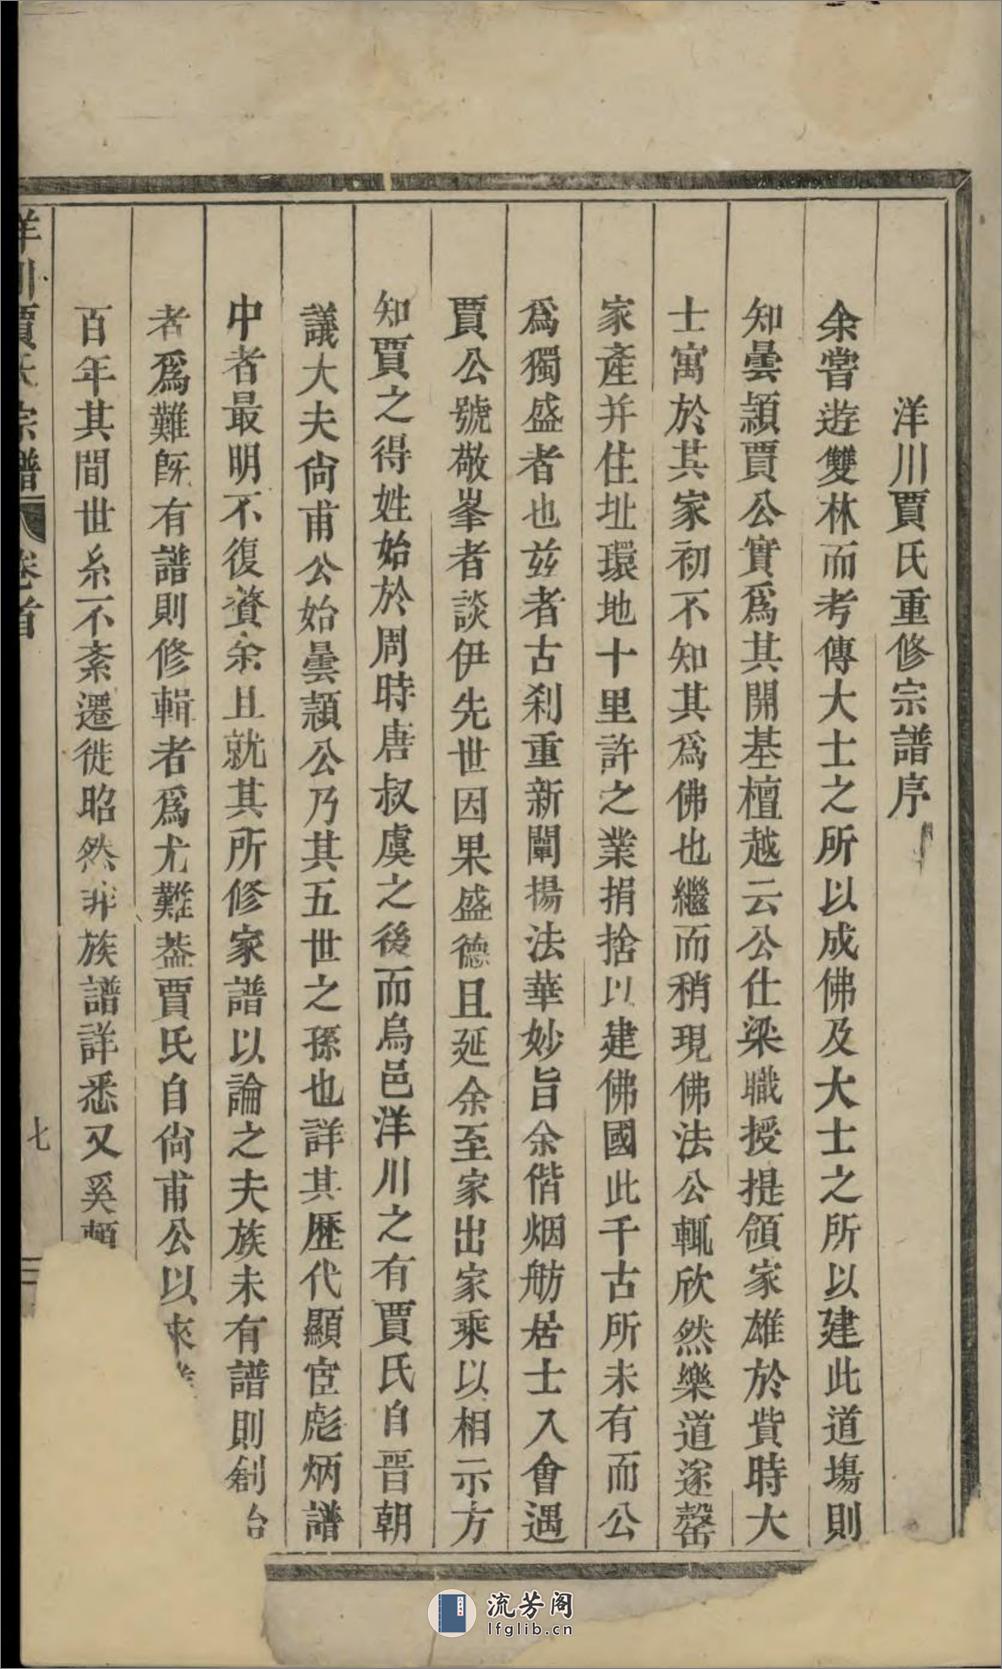 洋川賈氏重修宗譜序
余嘗遊雙林而考傳大士之所以成佛及大士之所以建此道塲則
知曇頴賈公實爲其開基檀越云公仕梁職授提領家雄於貲時大
士寓於其家初不知其爲佛也繼而稍現佛法公輒欣然樂道遂罄
家產并住址環地十里許之業捐捨以建佛國此千古所未有而公
爲獨盛者也兹者古刹重新闡揚法華妙旨余偕烟舫居士入會遇
賈公號敬峯者談伊先世因果盛德且延余至家出家乘以相示方
知賈之得姓始於周時唐叔虞之後而烏邑洋川之有賈氏自晋朝
議大夫尙甫公始曇頴公乃其五世之孫也詳其歷代顯宦彪炳譜
中者最明不復贅余且就其所修家譜以論之夫族未有譜則創始
者爲難旣有譜則修輯者爲尤難葢賈氏自尙甫公以來
百年其間世系不紊遷徙昭然非族譜詳悉又奚
洋川賈氏宗譜 卷首
七
流芳阁
lfglib.cn